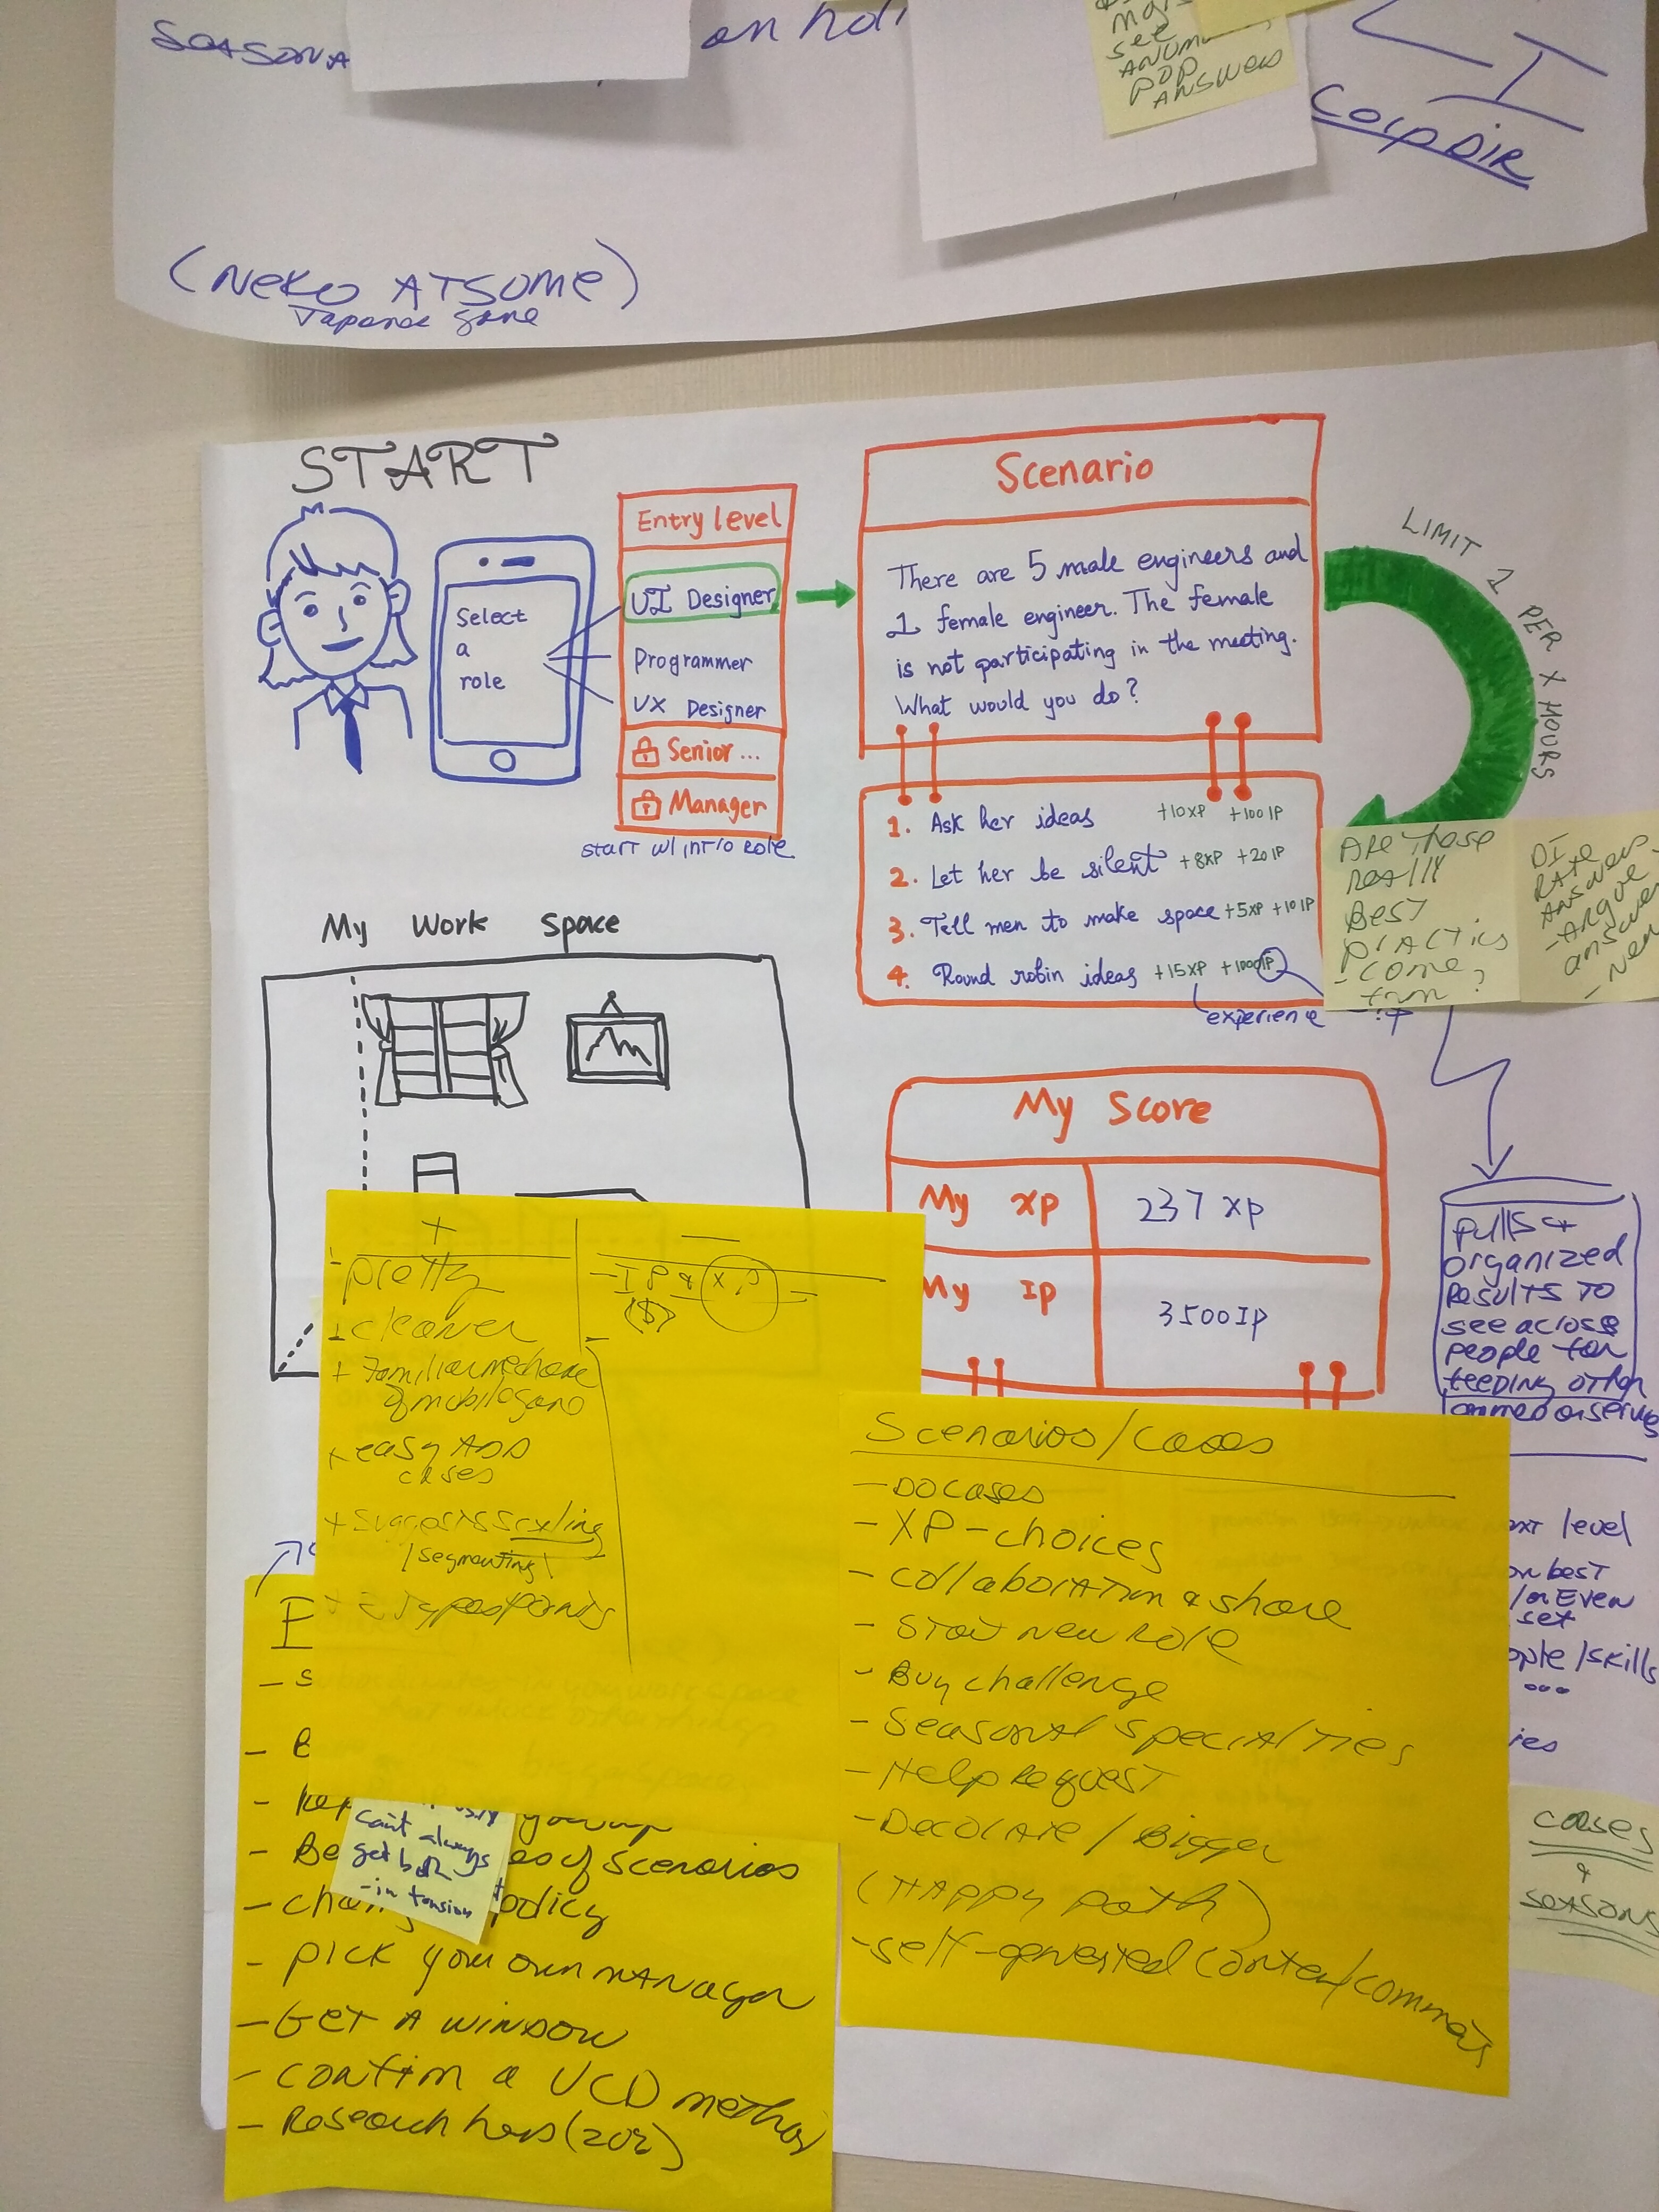 SEASONA
on
see
POP
ANSWERS
Corp DIR
(Neko ATSUME)
Japanese game
START
Select
a
role
Entry level
UI Designer
Programmer
UX Designer
Senior ...
Manager
start w/ intro role
Scenario
There are 5 male engineers and
1 female engineer. The female
is not participating in the meeting.
What would you do?
LIMIT 1 PER X HOURS
1. Ask her ideas +10XP +100IP
2. Let her be silent +8XP +20IP
3. Tell men to make space +5XP +10IP
4. Round robin ideas +15XP +1000IP
experience
Are these
really
Best
practices
- come
from?
DI
RATE
Answers
- Argue
answer
My Work Space
My Score
My XP 237 XP
My IP 3500IP
pulls +
organized
results to
see across
people for
feeding other
+
-
- pretty
+ cleaner
+ Familiar mechanic
of mobile game
+ easy ADD
cases
+ suggests scaling
/segmenting\
- IP & XP -
($)
Scenarios/Cases
- DO CASES
- XP-choices
- collaboration & share
- Start new role
- Buy challenge
- Seasonal specialties
- Help Request
- Decorate / Bigger
(Happy path)
- self-generated content/comments
level
on best
/or Even
set
/skills
...
cases
&
seasons
- S
- B
can't always
get both
- in tension
of scenarios
policy
- pick your own manager
- Get a window
- confirm a UCD method
- Research hours (20%)